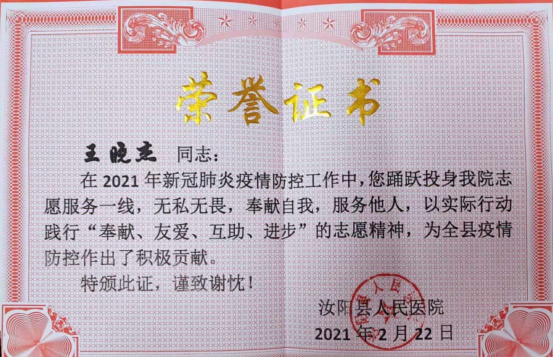 荣誉证书
王晓杰 同志：
在2021年新冠肺炎疫情防控工作中，您踊跃投身我院志
愿服务一线，无私无畏，奉献自我，服务他人，以实际行动
践行“奉献、友爱、互助、进步”的志愿精神，为全县疫情
防控作出了积极贡献。
特颁此证，谨致谢忱！
汝阳县人民医院
2021年2月22日